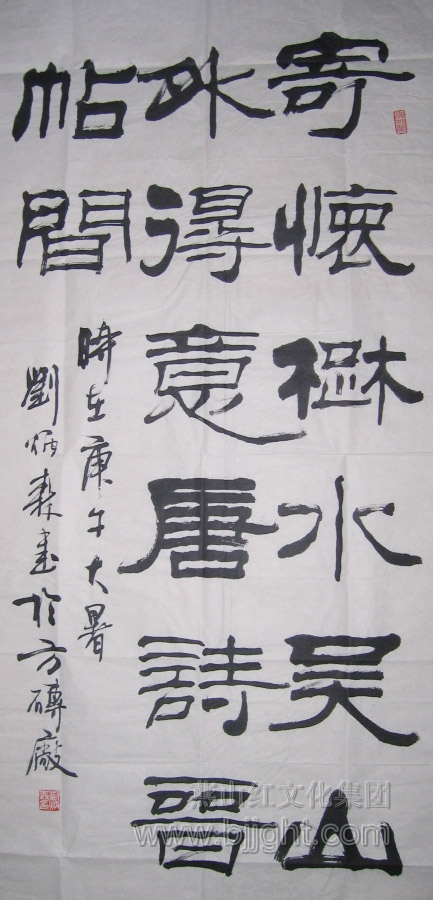 寄懷楚水吳山
外得意唐詩晉
帖間
時在庚午大暑
劉炳森書於方磚廠
燕山红文化集团
www.bjjght.com